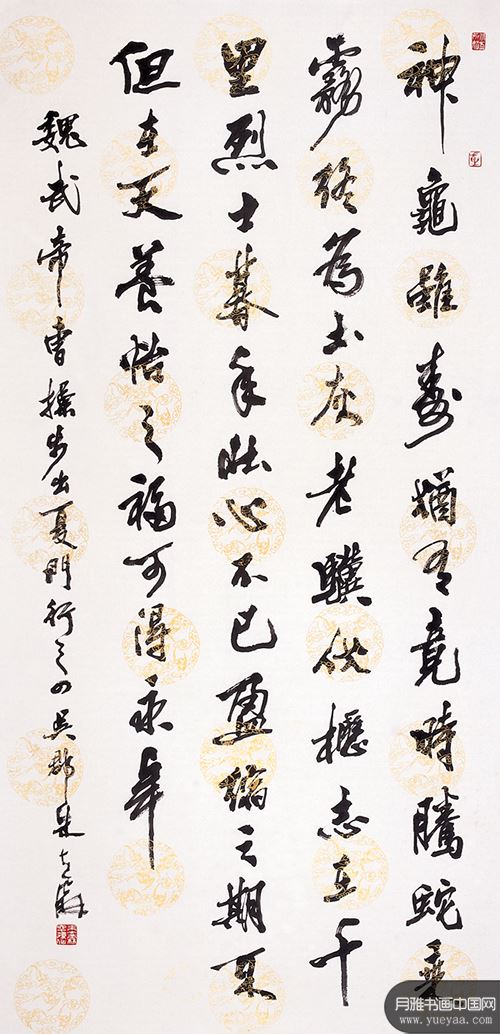 神龜雖壽猶有竟時騰蛇乘
霧終為土灰老驥伏櫪志在千
里烈士暮年壯心不已盈縮之期不
但在天養怡之福可得永年
魏武帝曹操步出夏門行之四吳郡朱
月雅书画中国网
www.yueyaa.com